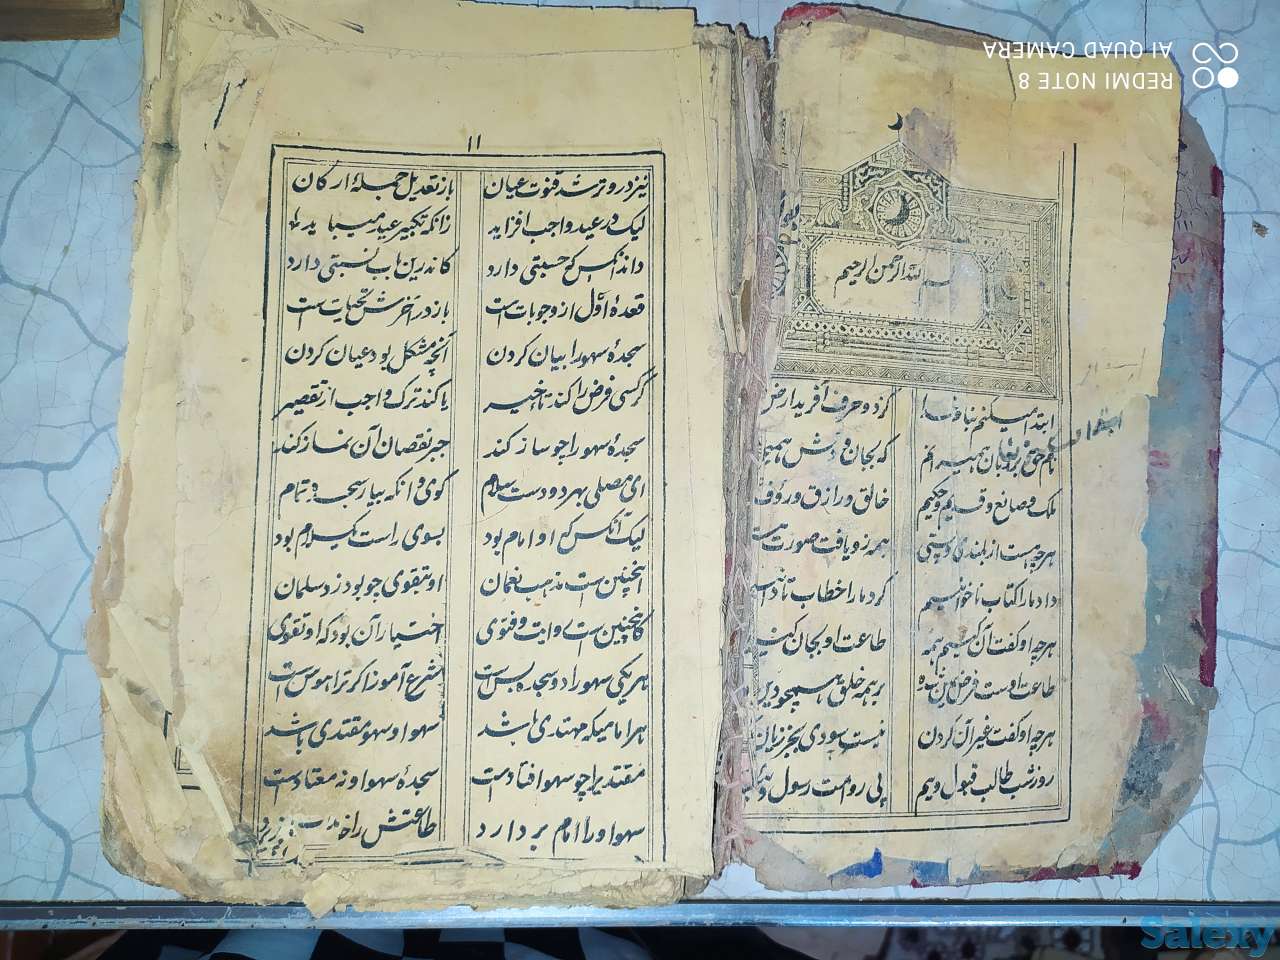 الله الرحمن الرحيم
ابتدا میکنم بنام خدا کرد و حرف آفرید ارض
نام حق بر زبان همیرانم که بجان و دلش همی
ملک و صانع و قدیم و حکیم خالق و رازق و رؤف
هرچه هست از بلندی و پستی همه زو یافت صورت هست
داد ما را کتاب تا خوانیم کرد ما را خطاب تا دانیم
هرچه او گفت آن کنیم همه طاعت او بجان کنیم
طاعت اوست فرض عین شده بر همه خلق همچو دین
هرچه او گفت غیر آن کردن نیست سودی بجز زیان
روز شب طالب قبول ویم پی رو امت رسول ویم
۱۱
نیز در وتر شد قنوت عیان باز تعدیل جمله ارکان
لیک در عید واجب افزاید زانکه تکبیر عید میباید
داند آنکس که حسبتی دارد کاندرین باب نسبتی دارد
قعدهٔ اول از وجوبات است باز در آخرش تحیات است
سجدهٔ سهو را بیان کردن آنچه مشکل بود عیان کردن
گر کسی فرض را کند تاخیر یا کند ترک واجب از تقصیر
سجدهٔ سهو را چو ساز کند جبر نقصان آن نماز کند
ای مصلی بهر دو دست سلام گوی وانگه بیار سجده تمام
لیک آنکس که او امام بود بسوی راست یک سلام بود
اینچنین است مذهب نعمان او بتقوی چو بوذر و سلمان
کاینچنین است روایت و فتوی اختیار آن بود که او تقوی
بهر یکی سهو را دو سجده بس است شرع آموز اگر ترا هوس است
هر امامیکه مهتدی باشد سهو او سهو مقتدی باشد
مقتدی را چو سهو افتادست سجدهٔ سهو او نه معتادست
سهو او را امام بردارد طاعتش را
REDMI NOTE 8
AI QUAD CAMERA
Salexy